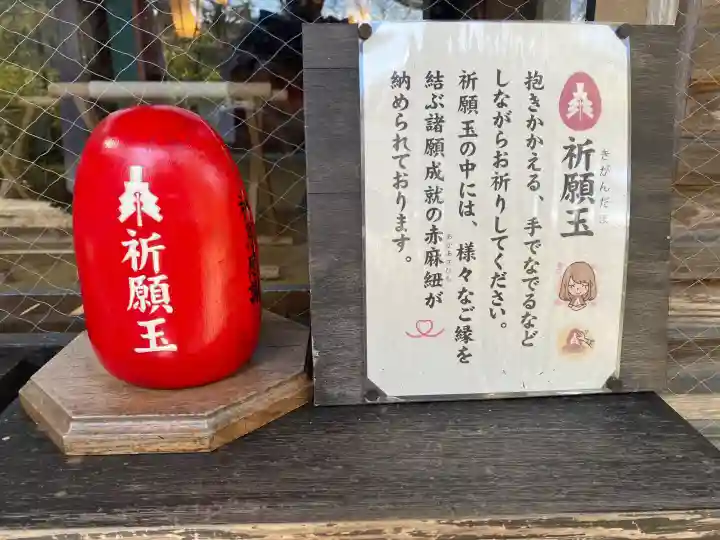 祈願玉
きがんだま
祈願玉
抱きかかえる、手でなでるなど
しながらお祈りしてください。
祈願玉の中には、様々なご縁を
結ぶ諸願成就の赤麻紐が
あかあさひも
納められております。